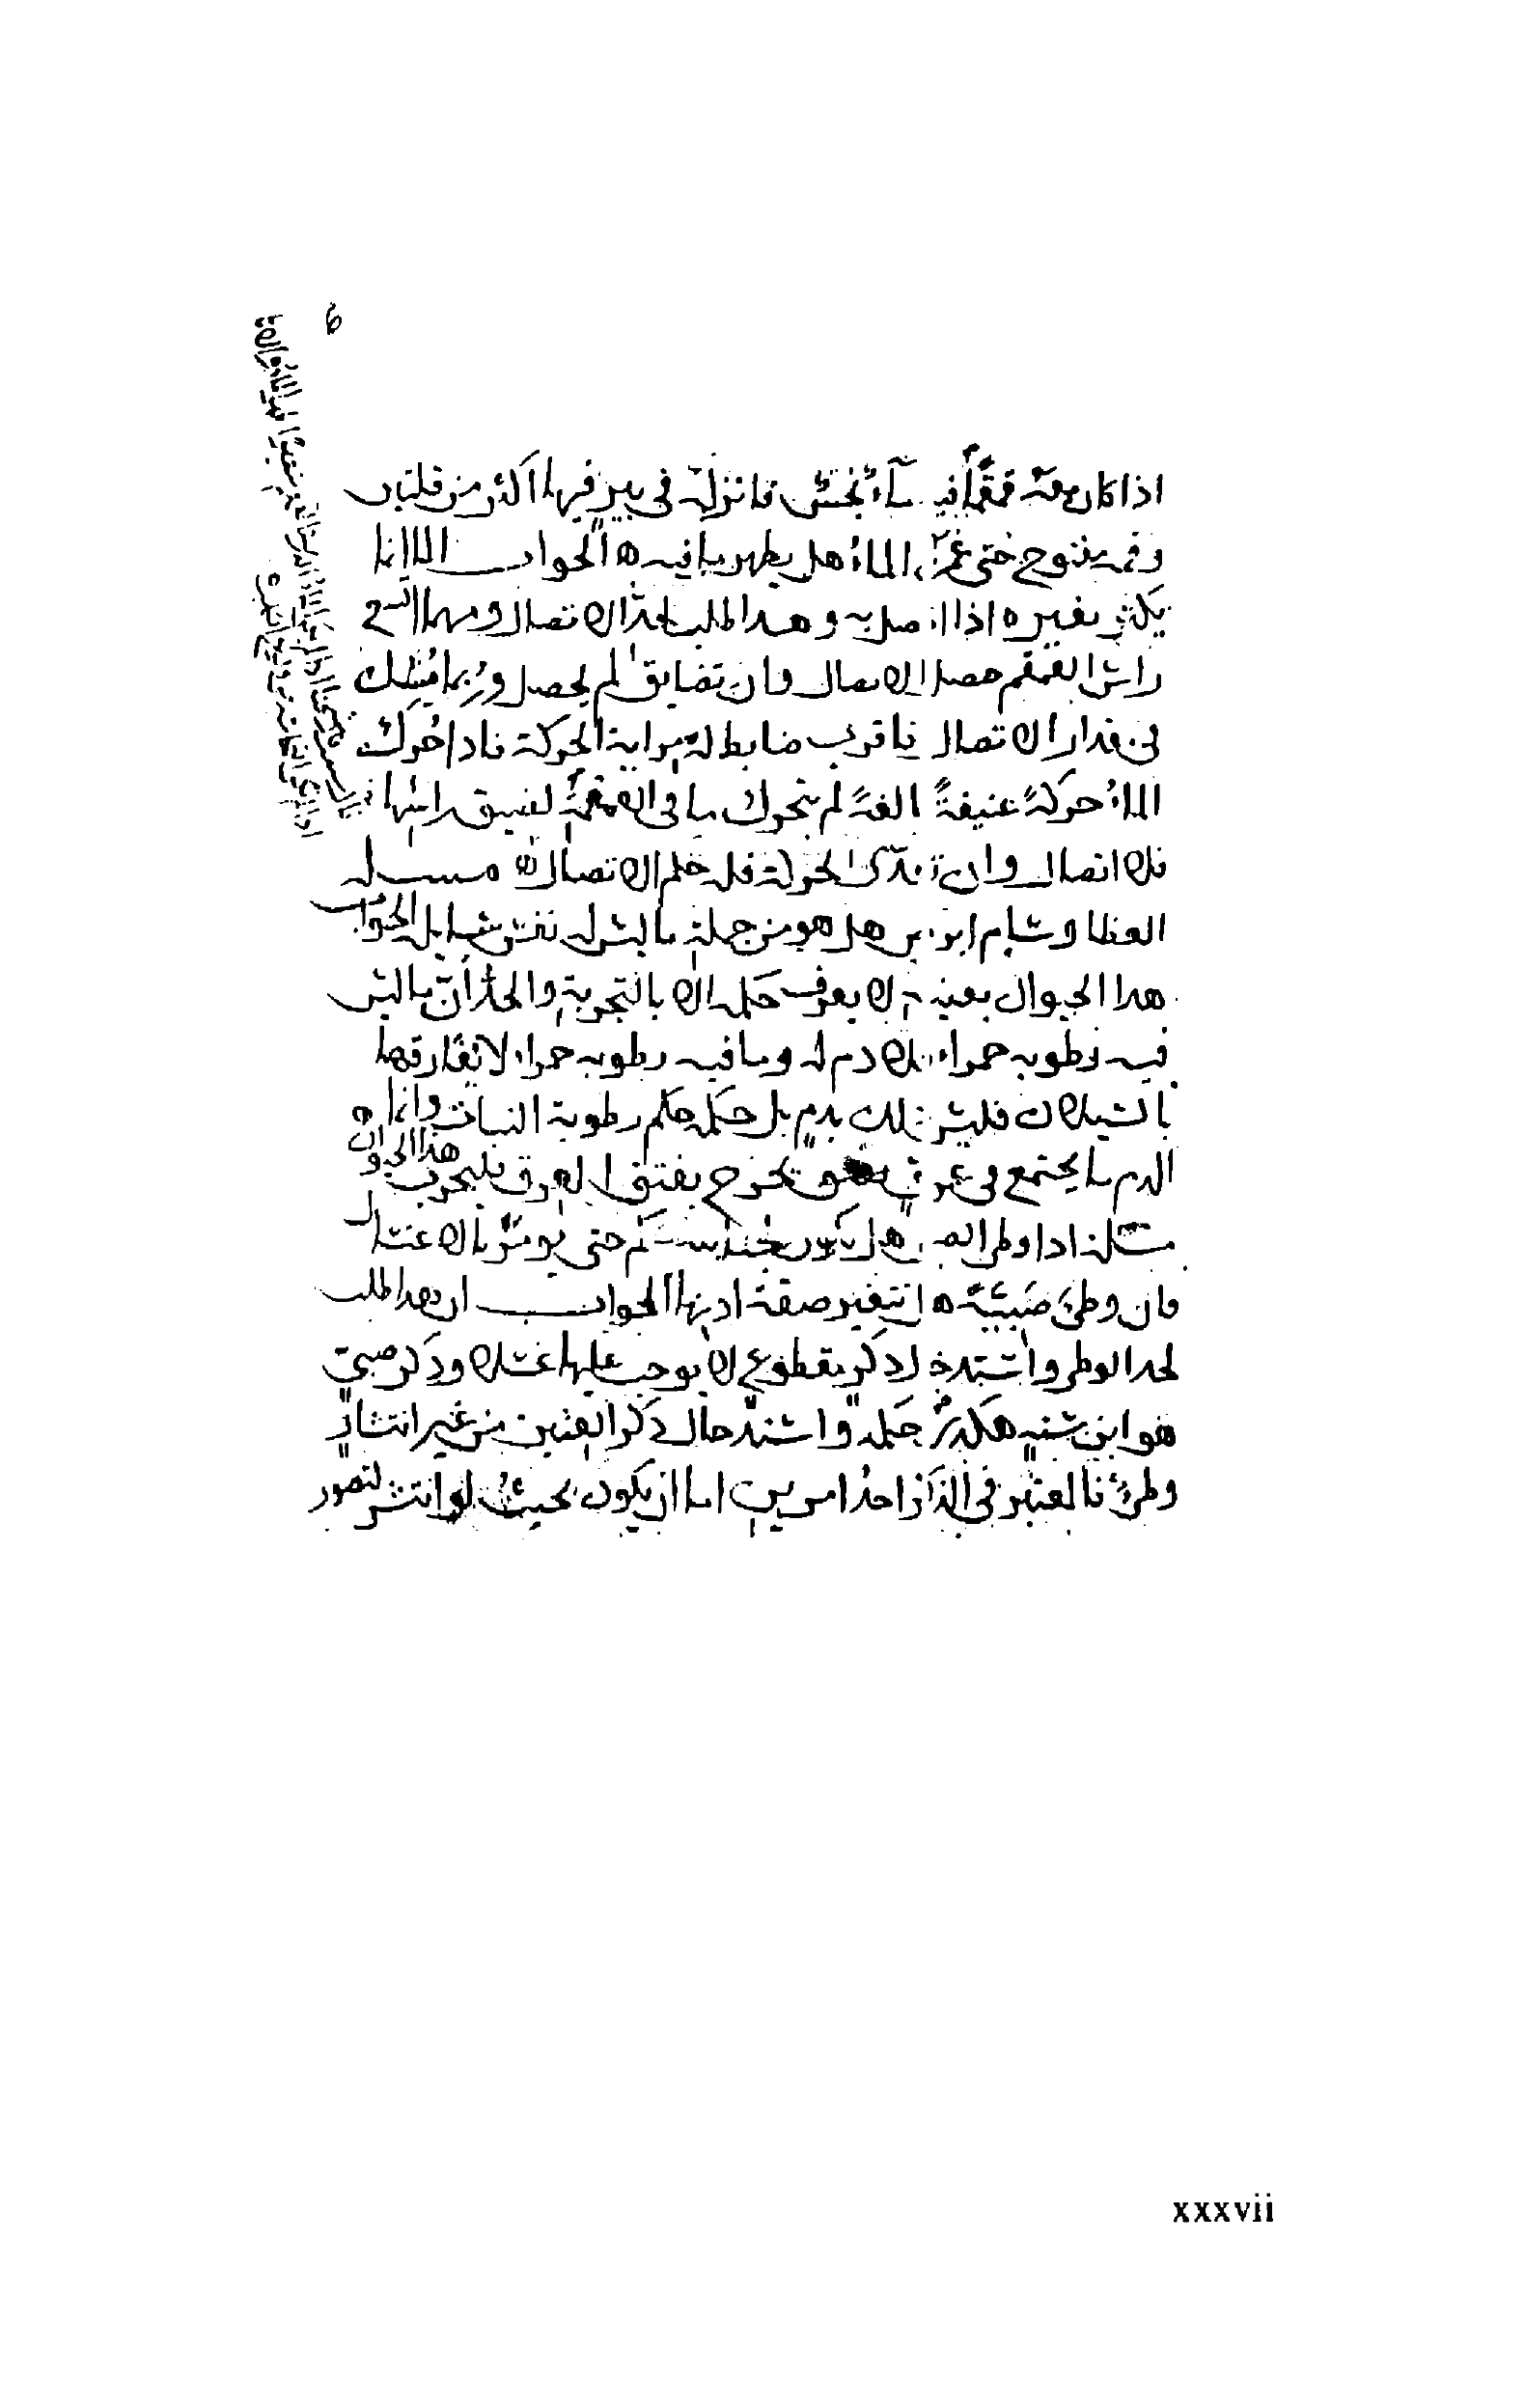 اذا كان معه قمقما فيه ماء نجس فانزله في بير فيها اكثر من قلتين
وفمه مفتوح حتى غمره الماء هل يطهر ما فيه ه الجواب الماء انما
يكثر بغيره اذا اتصل به وهذا طلب لحد الاتصال ومهما اتسع
راس القمقم حصل الاتصال وان تضايق لم يحصل وربما يشك
في مقدار الاتصال فاقرب ضابط له سراية الحركة فاذا حرك
الماء حركة عنيفة لم يتحرك ما في القمقمة لضيق راسها
فلا اتصال وان تعدى الحركة فله حكم الاتصال ه مسئله
العظا وسام ابرص هل هو من جملة ما ليس له نفس سايله الجواب
هذا الحيوان بعينه لا يعرف حكمه الا بالتجربة والحد ان ما ليس
فيه رطوبه حمراء فلا دم له وما فيه رطوبه حمراء لا تفارقها
بالسيلان فليس ذلك بدم بل حكمه حكم رطوبة النبات وانما
الدم ما يجتمع في عروق تخرج بفتق العروق فليجرب هذا الحيوان
مسئلة اذا وطى الصبي هل يكون جنبا حتى يومر بالاغتسال
فان وطئ صبية هل تتغير صفة اذنها الجواب ان هذا طلب
لحد الوطى واستدخال ذكر مقطوع لا يوجب عليها غسلا وذكر صبي
هو ابن سنه هكذى حكمه واستدخال ذكر العنين من غير انتشار
وطئ فالمعتبر في الذكر احد امرين اما ان يكون بحيث لو انتشر لتصور
xxxvii